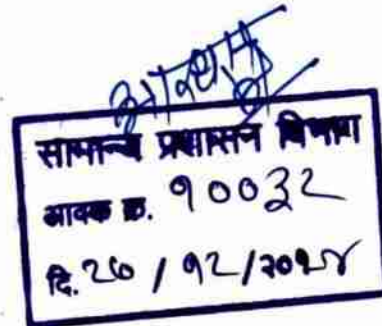 सामान्य प्रशासन विभाग
आवक क्र. १००३२
दि. २७ / १२ / २०२४